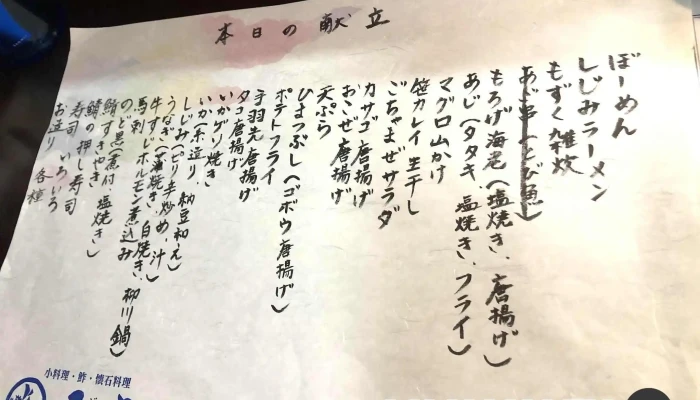 本日の献立
ぼーめん
しじみラーメン
もずく雑炊
あご串(とび魚)
もろげ海老(塩焼き、唐揚げ)
あじ(タタキ、塩焼き、フライ)
マグロ山かけ
笹カレイ生干し
ごちゃまぜサラダ
カサゴ唐揚げ
おこぜ唐揚げ
天ぷら
ひまつぶし(ゴボウ唐揚げ)
ポテトフライ
手羽先唐揚げ
タコ唐揚げ
いかゲソ焼き
いか(糸造り、納豆和え)
しじみ(ピリ辛炒め、汁)
うなぎ(蒲焼き、白焼き、柳川鍋)
牛すじホルモン煮込み
馬刺し
のど黒(煮付、塩焼き)
鮪すきやき
鯖の押し寿司
寿司 いろいろ
お造り 各種
小料理・鮓・懐石料理